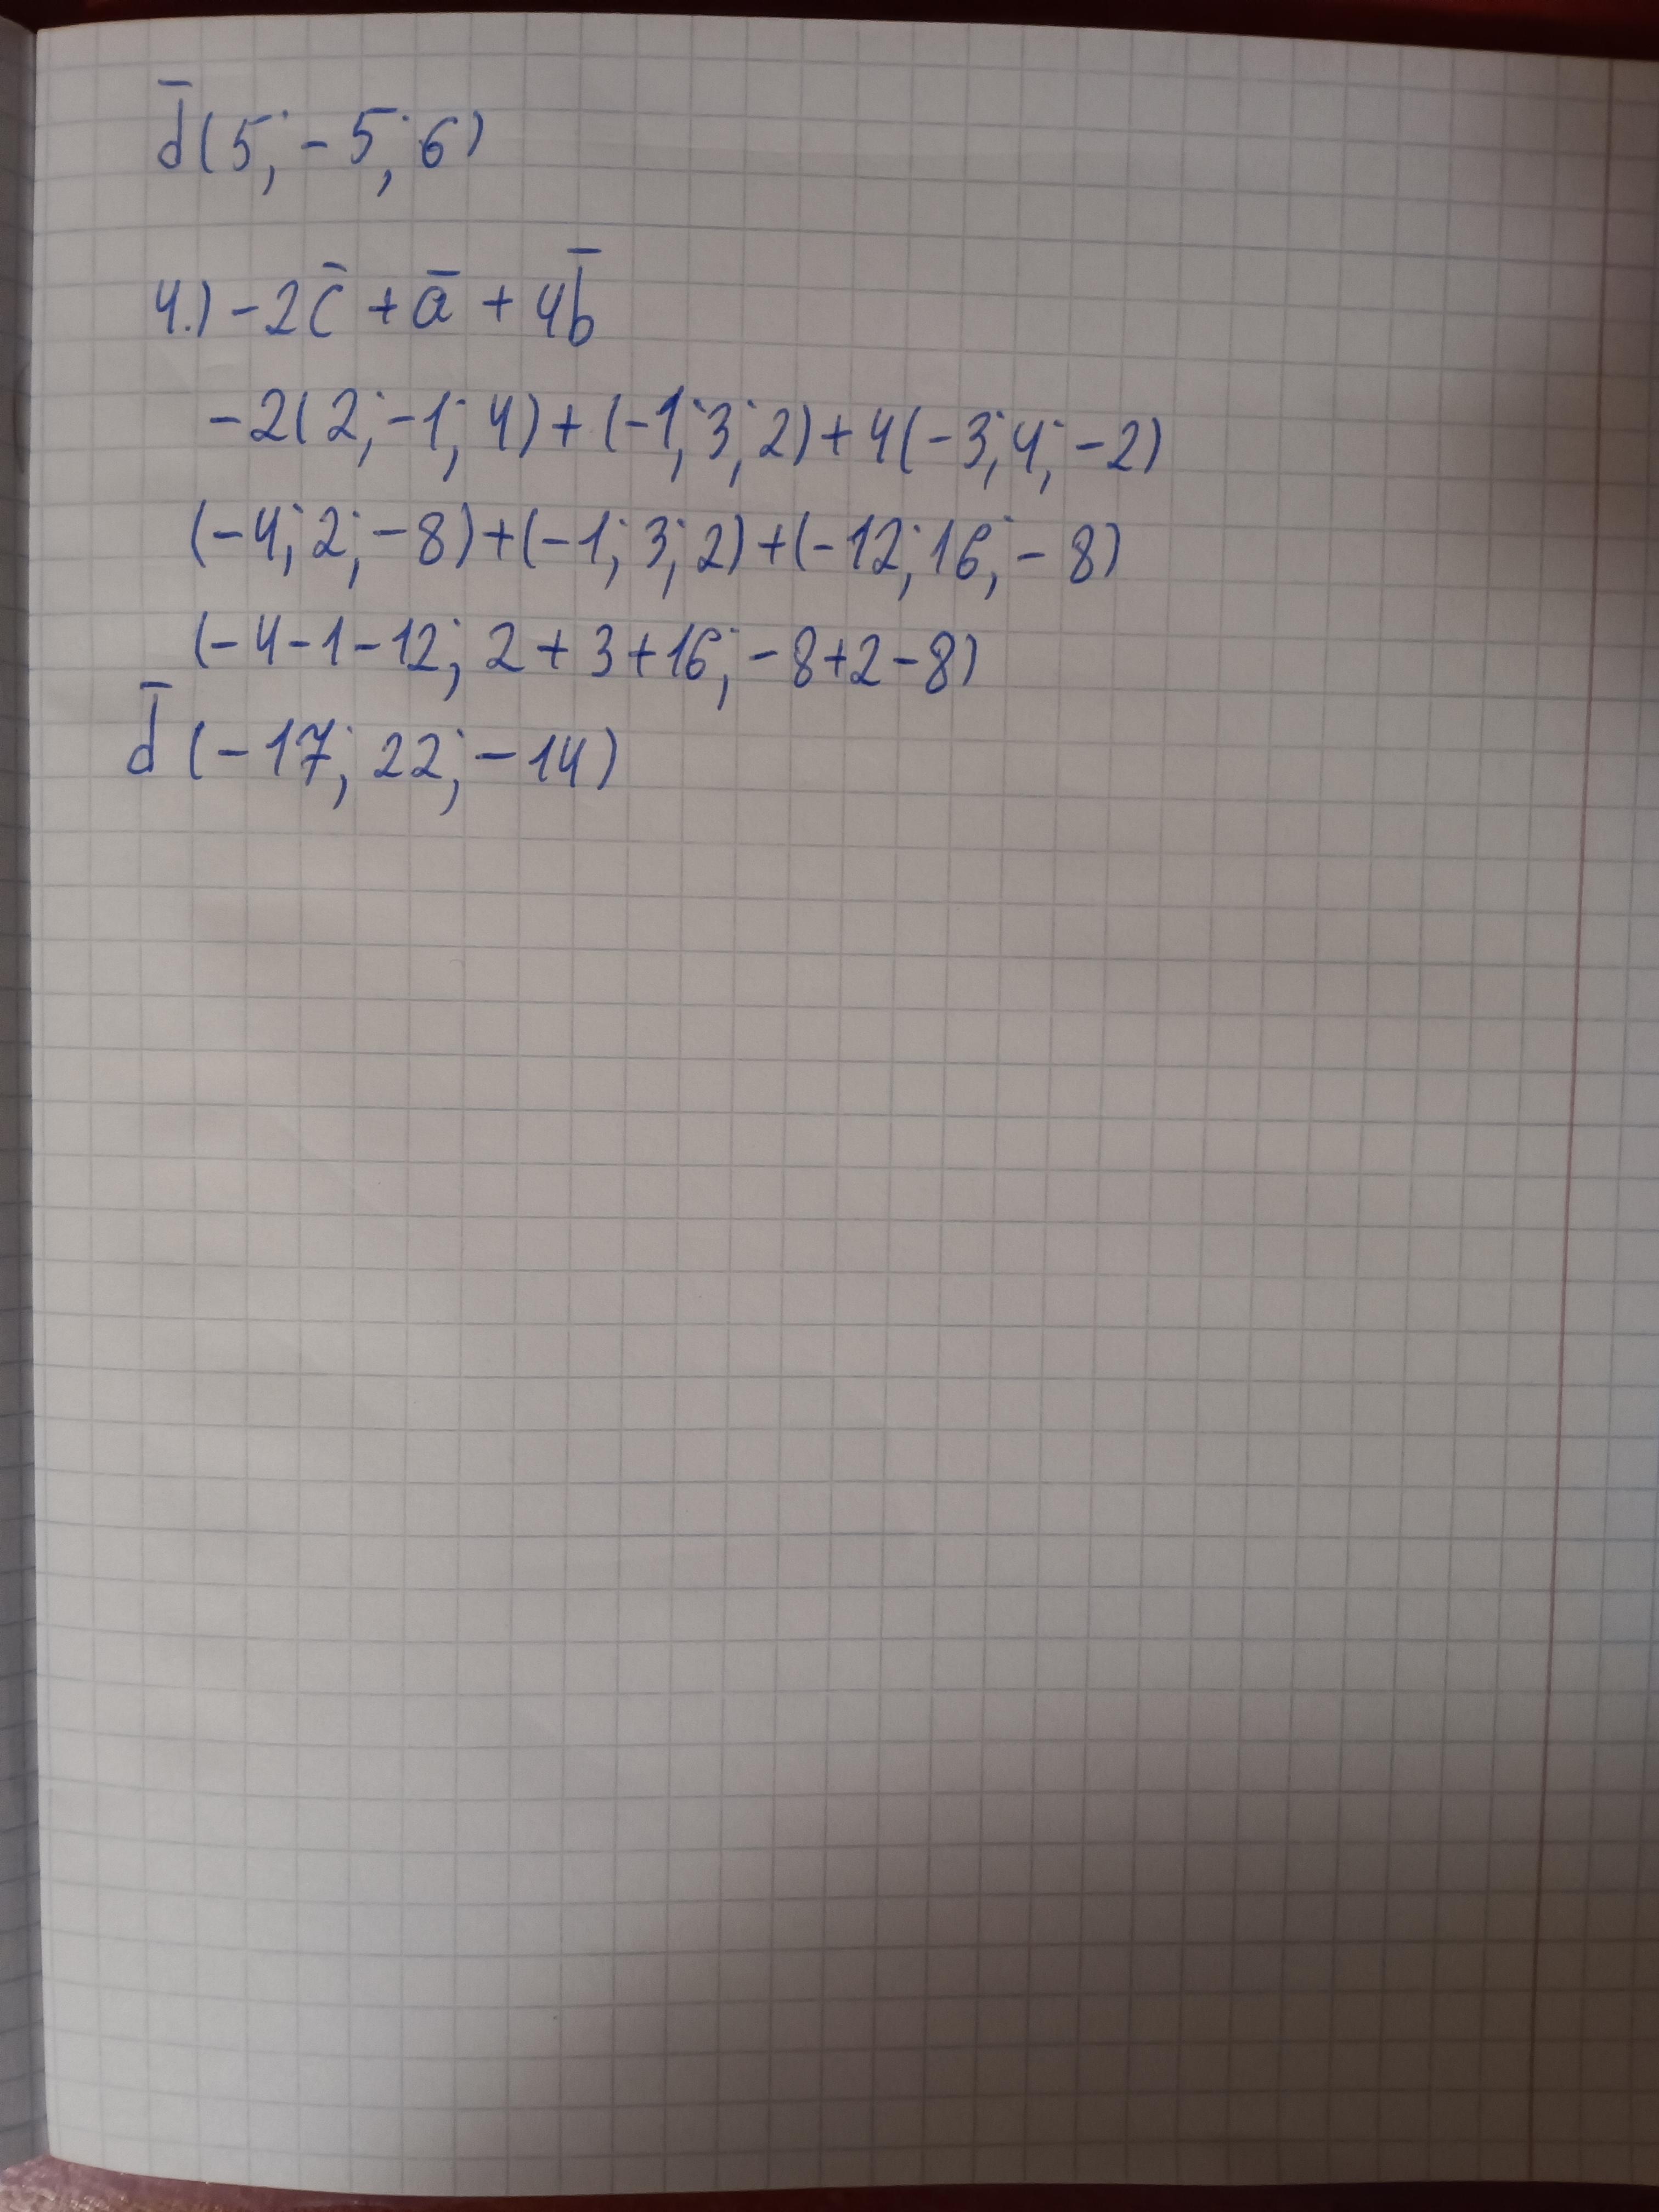 d̄(5; -5; 6)
4.) -2c̄ + ā + 4b̄
-2(2; -1; 4) + (-1; 3; 2) + 4(-3; 4; -2)
(-4; 2; -8) + (-1; 3; 2) + (-12; 16; -8)
(-4-1-12; 2+3+16; -8+2-8)
d̄ (-17; 22; -14)